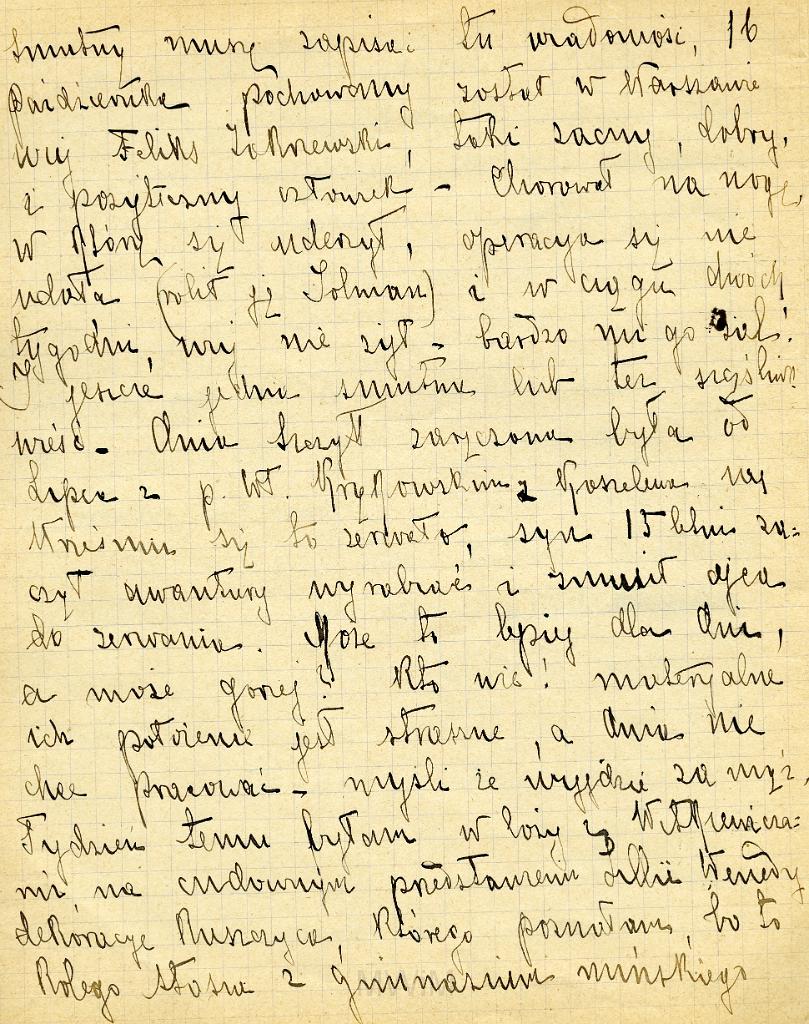 Smutny muszę zapisać tu wiadomość, 16
października pochowany został w Warszawie
wuj Feliks Zakrzewski, taki zacny, dobry,
i pożyteczny człowiek – Chorował na nogę,
w którą się uderzył, operacya się nie
udała (robił ją Solman) i w ciągu dwóch
tygodni, wuj nie żył – bardzo mi go żal!
I jeszcze jedna smutna lub też szczęśliwa
wieść – Ania Szczytt zaręczona była od
Lipca z p. Wł. z Koszelewa
Wrześniu się to zerwało, syn 15 letni za=
czął awantury wyrabiać i zmusił ojca
do zerwania. Może to lepiej dla Ani,
a może gorzej? Kto wie! materyalne
ich położenie jest straszne, a Ania nie
chce pracować – myśli że wyjdzie za mąż.
Tydzień temu byłam w loży z Witkiewicza=
mi na cudownym przedstawieniu Lilli Wenedy
dekoracye Ruszczyca, którego poznałam, bo to
kolega Stasia z gimnazium mińskiego